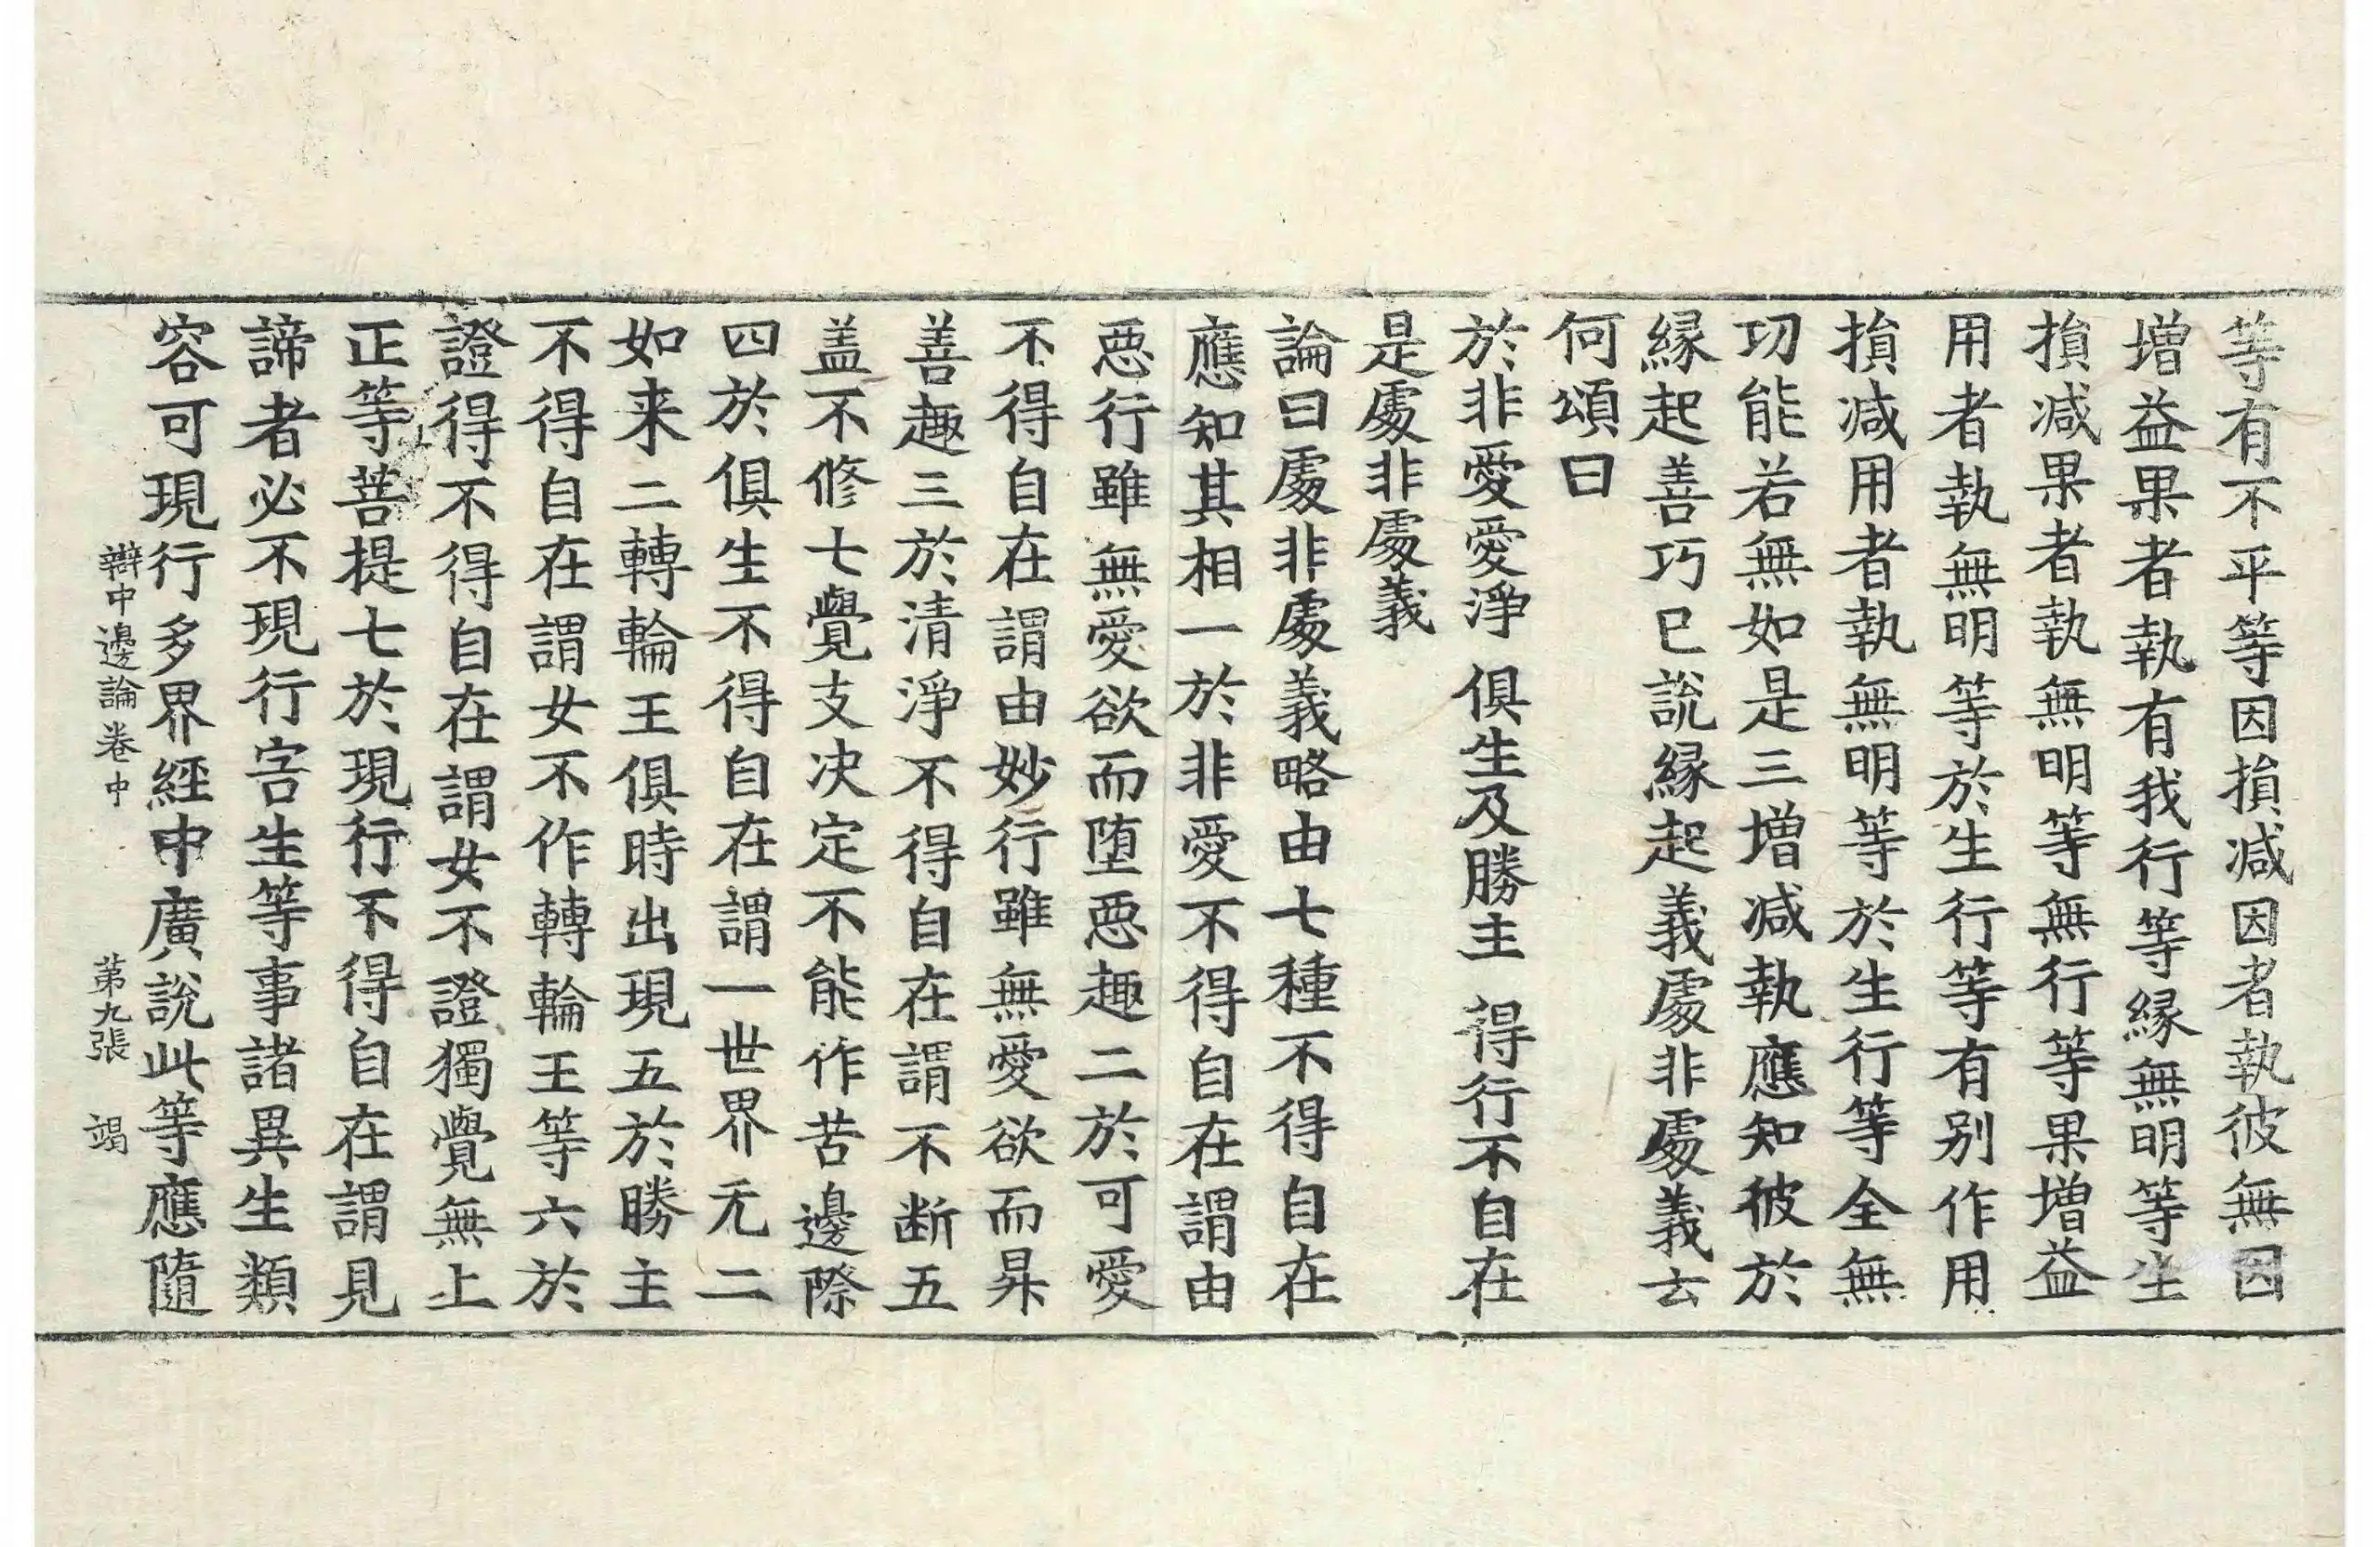 等有不平等因損减因者執彼無因
增益果者執有我行等緣無明等生
損减果者執無明等無行等果增益
用者執無明等於生行等有别作用
損减用者執無明等於生行等全無
功能若無如是三增减執應知彼於
緣起善巧已說緣起義處非處義云
何頌曰
於非愛愛淨 俱生及勝主 得行不自在
是處非處義
論曰處非處義略由七種不得自在
應知其相一於非愛不得自在謂由
惡行雖無愛欲而堕惡趣二於可愛
不得自在謂由妙行雖無愛欲而昇
善趣三於清淨不得自在謂不断五
盖不修七覺支决定不能作苦邊際
四於俱生不得自在謂一世界无二
如来二轉輪王俱時出現五於勝主
不得自在謂女不作轉輪王等六於
證得不得自在謂女不證獨覺無上
正等菩提七於現行不得自在謂見
諦者必不現行害生等事諸異生類
容可現行多界經中廣說此等應隨
辯中邊論卷中 苐九張 竭